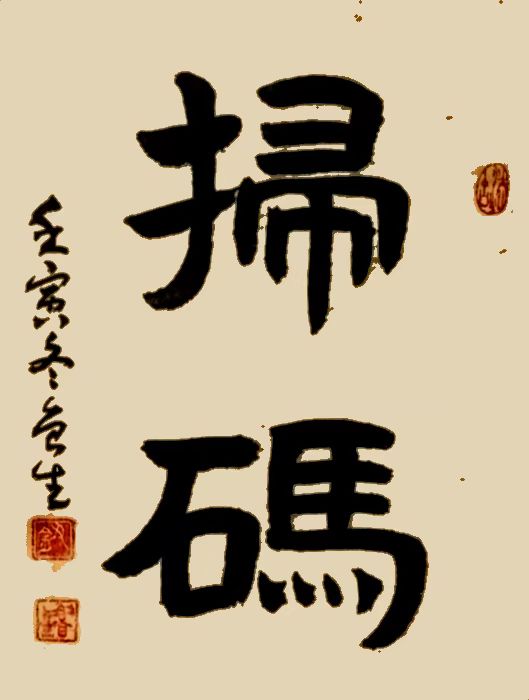 掃碼
壬寅冬魚生